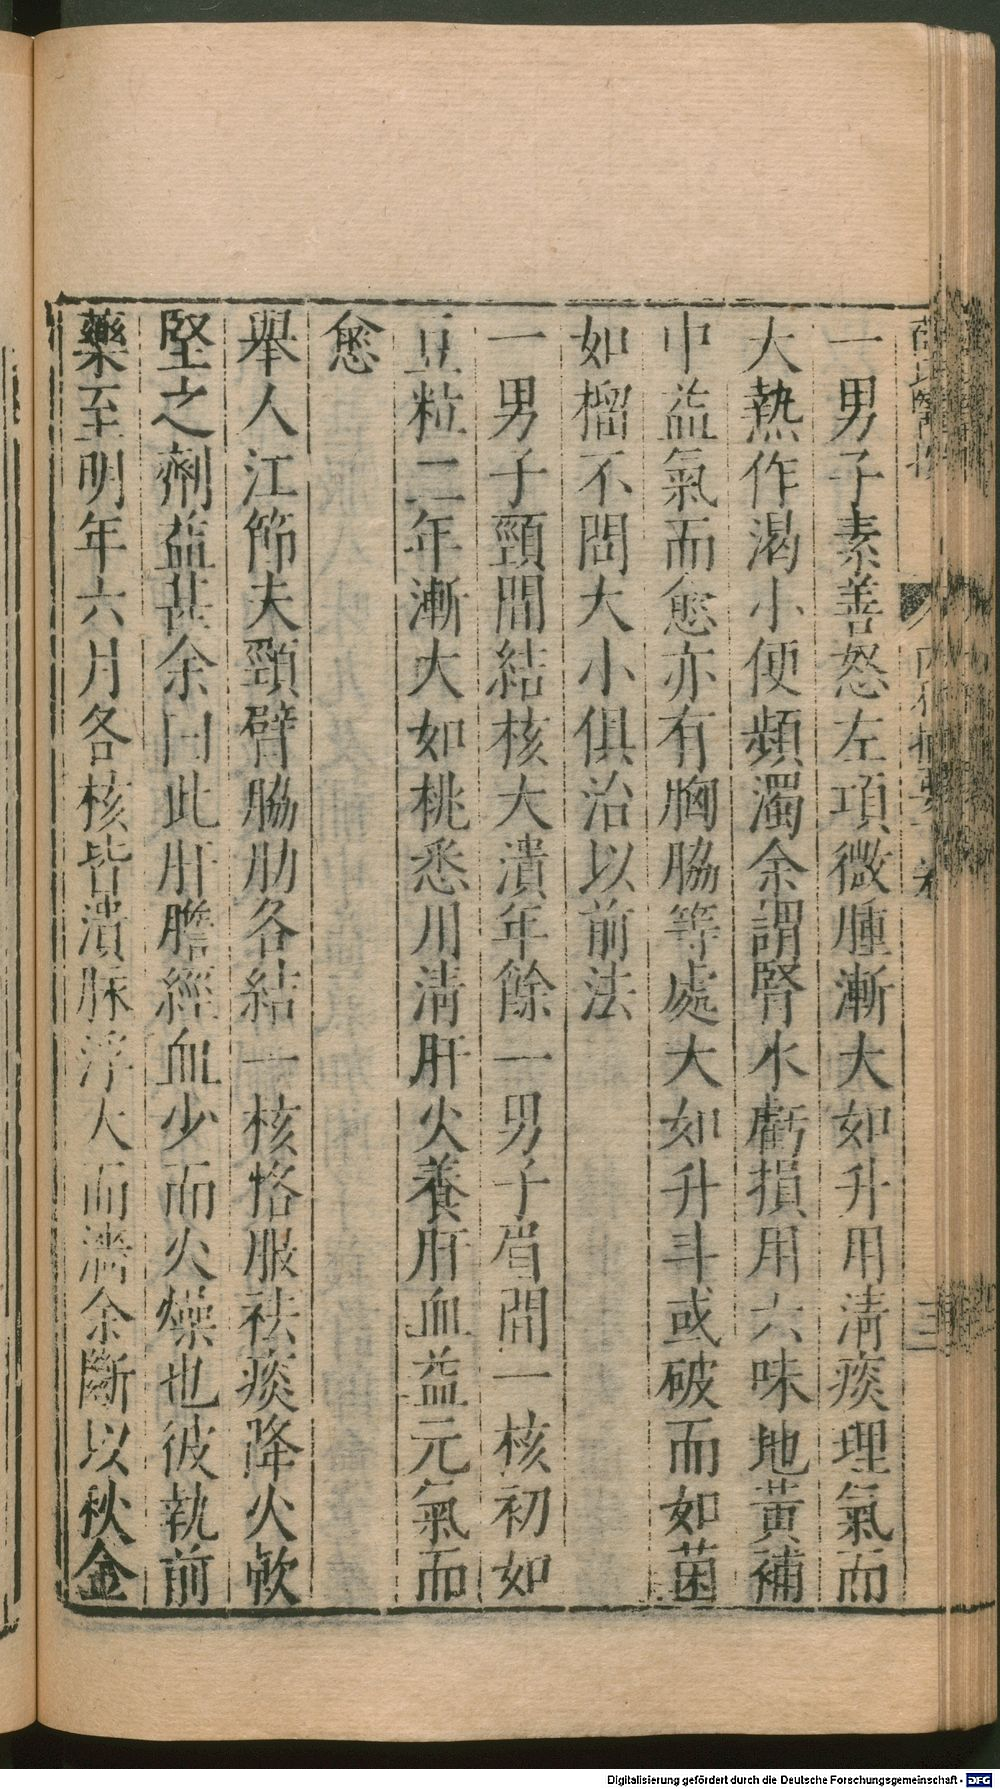 一男子素善怒左項微腫漸大如升用淸痰理氣而
大熱作渴小便頻濁余謂腎水虧損用六味地黃補
中益氣而愈亦有胸脇等處大如升斗或破而如菌
如榴不問大小俱治以前法
一男子頸間結核大潰年餘一男子眉間一核初如
豆粒二年漸大如桃悉用淸肝火養肝血益元氣而
愈
舉人江節夫頸臂脇肋各結一核恪服祛痰降火軟
堅之劑益甚余曰此肝膽經血少而火燥也彼執前
藥至明年六月各核皆潰脉浮大而濇余斷以秋金
Digitalisierung gefördert durch die Deutsche Forschungsgemeinschaft - DFG